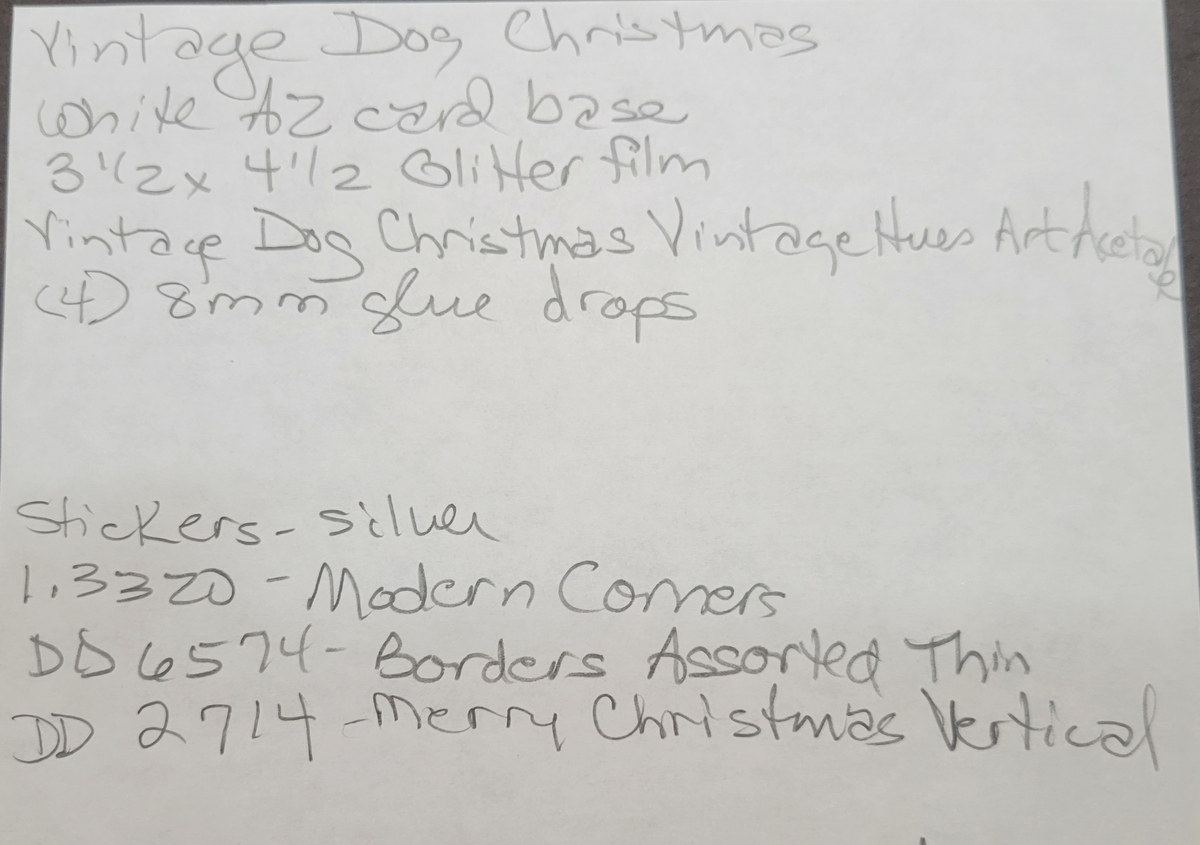 Vintage Dog Christmas
White A2 card base
3 1/2 x 4 1/2 Glitter film
Vintage Dog Christmas Vintage Hues Art Acetate
(4) 8mm glue drops
Stickers - silver
1.3320 - Modern Corners
DD 6574 - Borders Assorted Thin
DD 2714 - Merry Christmas Vertical